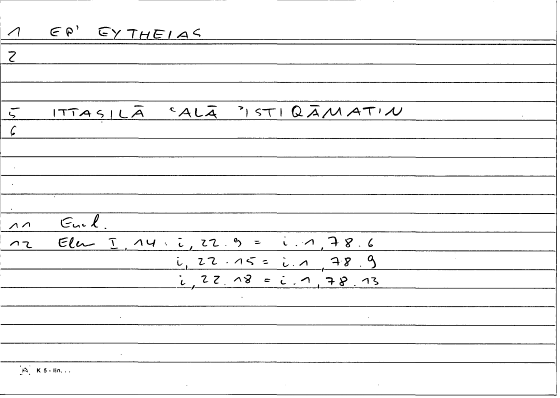 1 EP' EYTHEIAS
2
5 ITTASILĀ ʿALĀ ʾISTIQĀMATIN
6
11 Eucl.
12 Elem I, 14 : i, 22.9 = i.1, 78.6
i, 22.15 = i.1, 78.9
i, 22.18 = i.1, 78.13